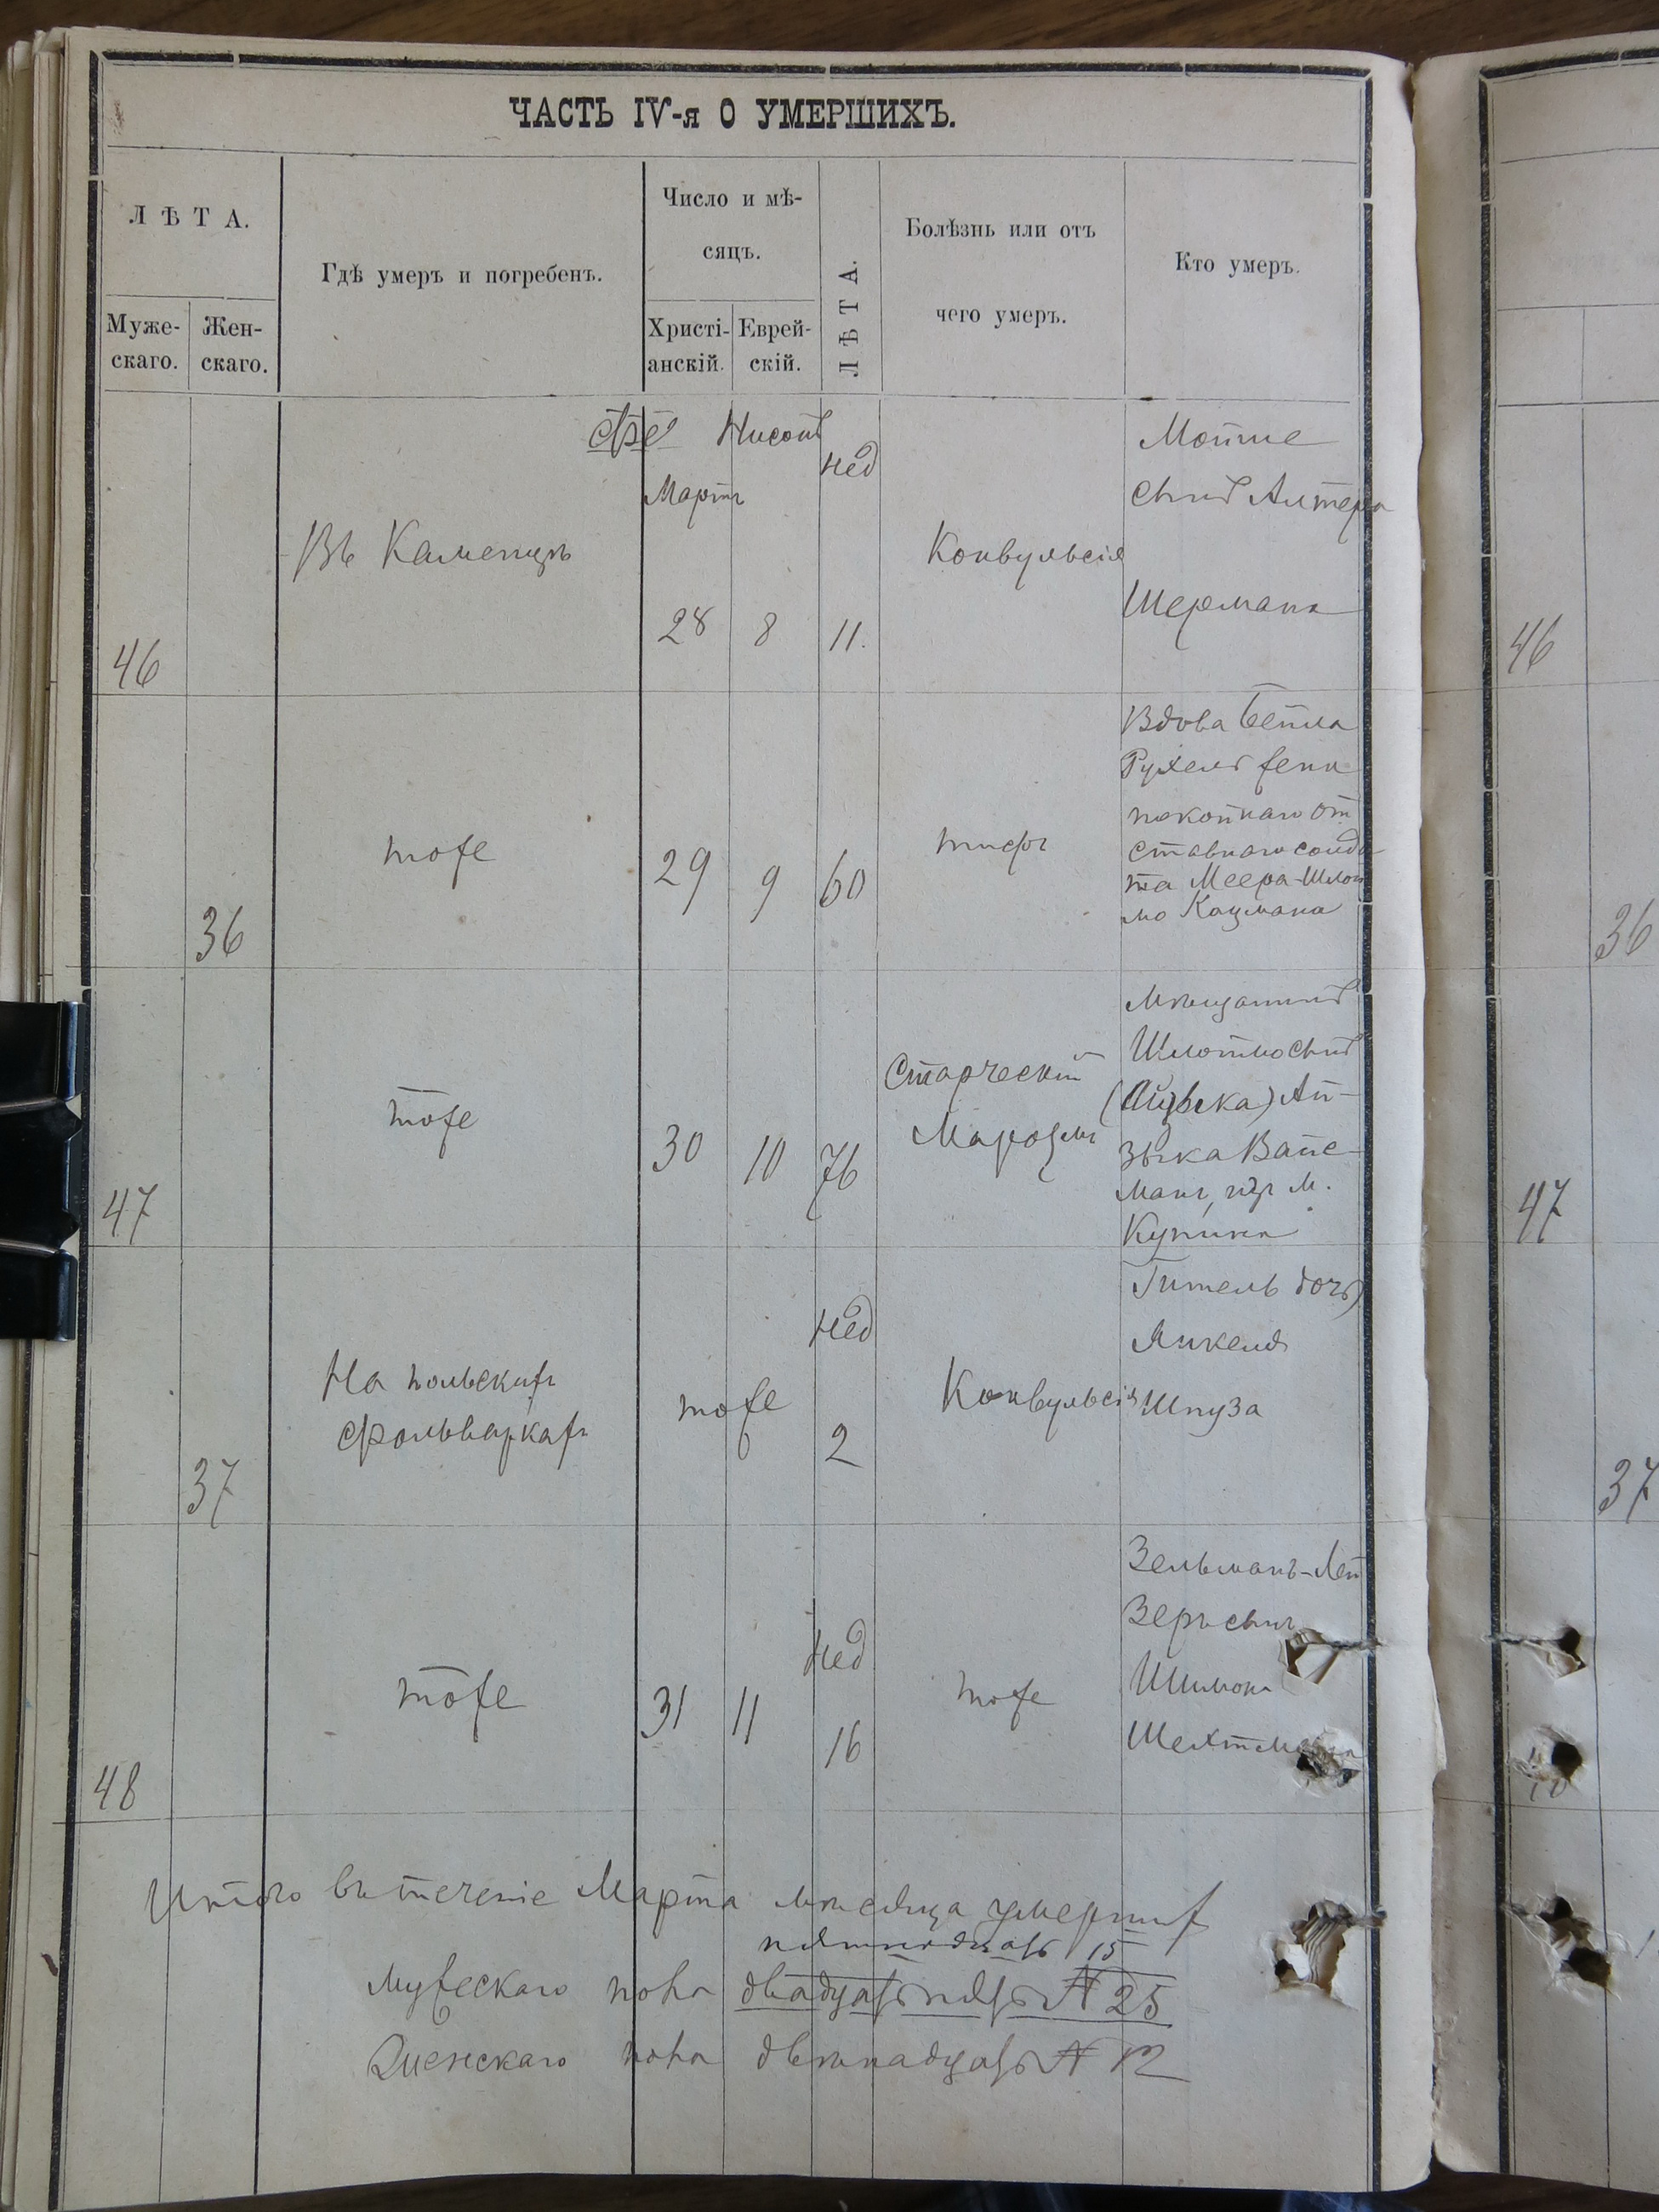 ЧАСТЬ IV-я О УМЕРШИХЪ.
ЛѢТА.
Муже-
скаго.
Жен-
скаго.
Гдѣ умеръ и погребенъ.
Число и мѣ-
сяцъ.
Христі-
анскій.
Еврей-
скій.
ЛѢТА.
Болѣзнь или отъ
чего умеръ.
Кто умеръ.
46
Въ Каменцѣ
Мартъ
28
Нисонъ
8
нед
11.
Конвульсія
Мотие
сынъ Алтера
Шермана
46
36
тоже
29
9
60
тифъ
Вдова Бейла
Рухель жена
покойнаго от
ставнаго солда
та Меера-Шлой
мо Кацмана
36
47
тоже
30
10
76
Старческій
Маразмъ
Мѣщанинъ
Шлоймо сынъ
(Айзыка) Ай-
зыка Вайс
манъ, изъ М.
Купина
47
37
На польскихъ
фольваркахъ
тоже
нед
2
Конвульсія
Гитель дочь
Янкеля
Шпуза
37
48
тоже
31
11
нед
16
тоже
Зельманъ-Лей
Зеръ сынъ
Шимона
Шехтмана
Итого въ теченіе Марта мѣсяца умерших
пятнадцать 15
мужескаго пола двадцать пять № 25
Женскаго пола двѣнадцать № 12